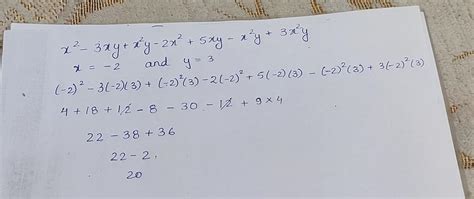 x² - 3xy + x²y - 2x² + 5xy - x²y + 3x²y
x = -2 and y = 3
(-2)² - 3(-2)(3) + (-2)²(3) - 2(-2)² + 5(-2)(3) - (-2)²(3) + 3(-2)²(3)
4 + 18 + 12 - 8 - 30 - 12 + 9 × 4
22 - 38 + 36
22 - 2
20